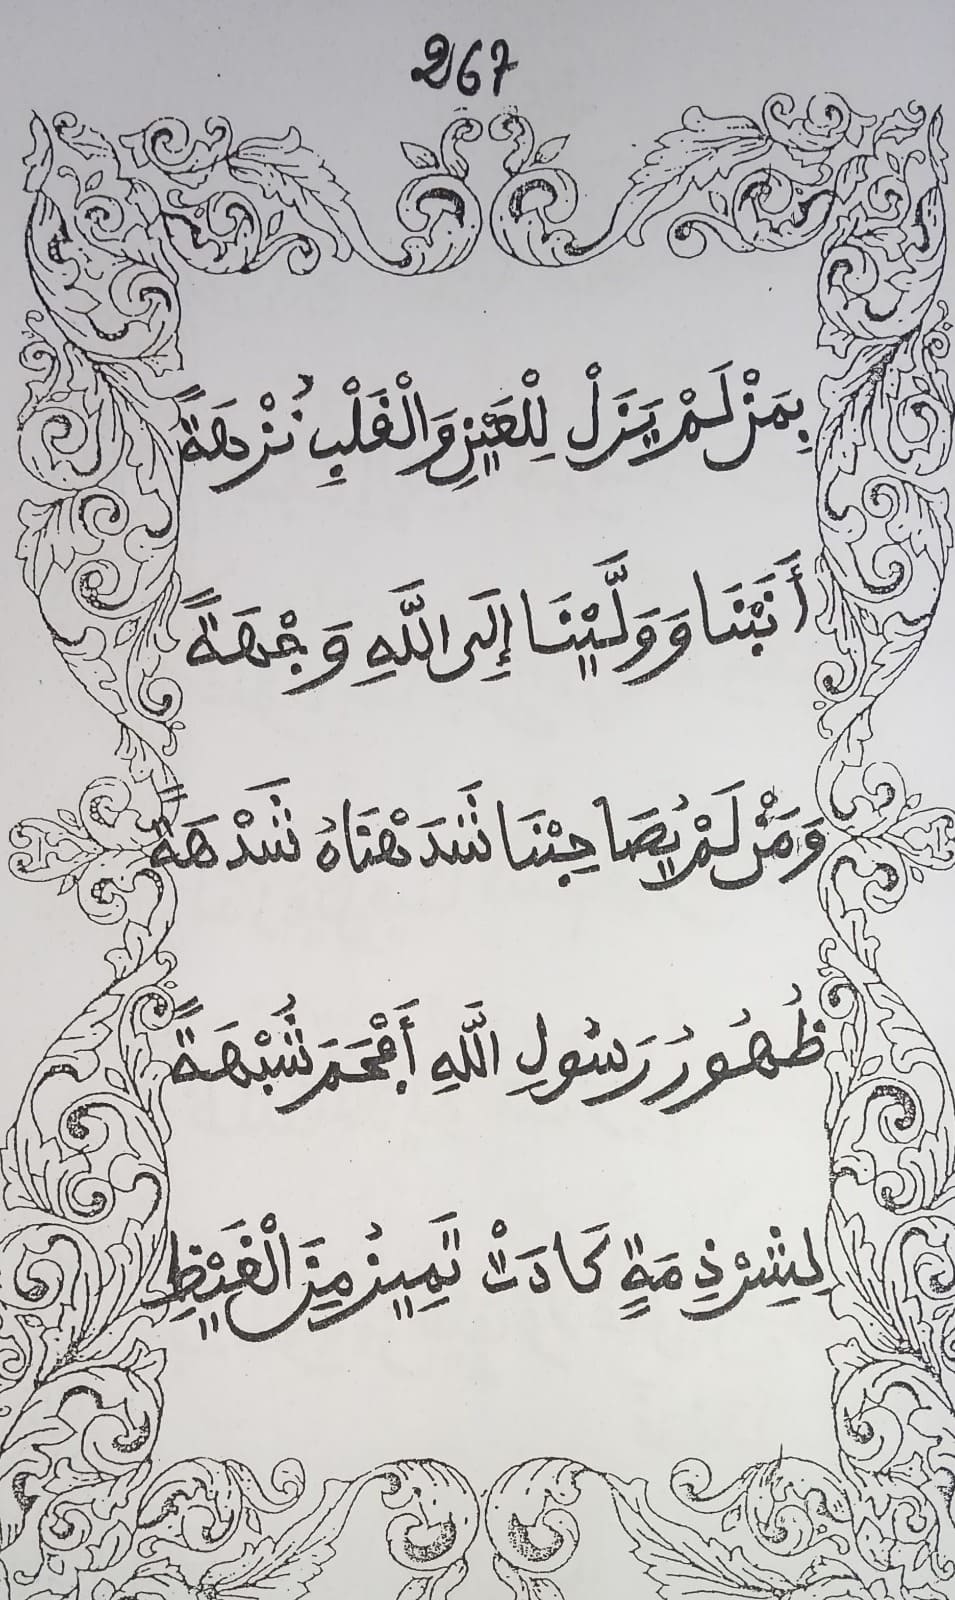 267
بِمَنْ لَمْ يَزَلْ لِلْعَيْنِ وَالْقَلْبِ نُزْهَةً
أَنَبْنَا وَوَلَّيْنَا إِلَى اللَّهِ وَجْهَةً
وَمَنْ لَمْ يُصَاحِبْنَا شَدَهْنَاهُ شَدْهَةً
ظُهُورُ رَسُولِ اللَّهِ أَفْحَمَ شُبْهَةً
لِشِرْذِمَةٍ كَادَتْ تَمِيزُ مِنَ الْغَيْظِ